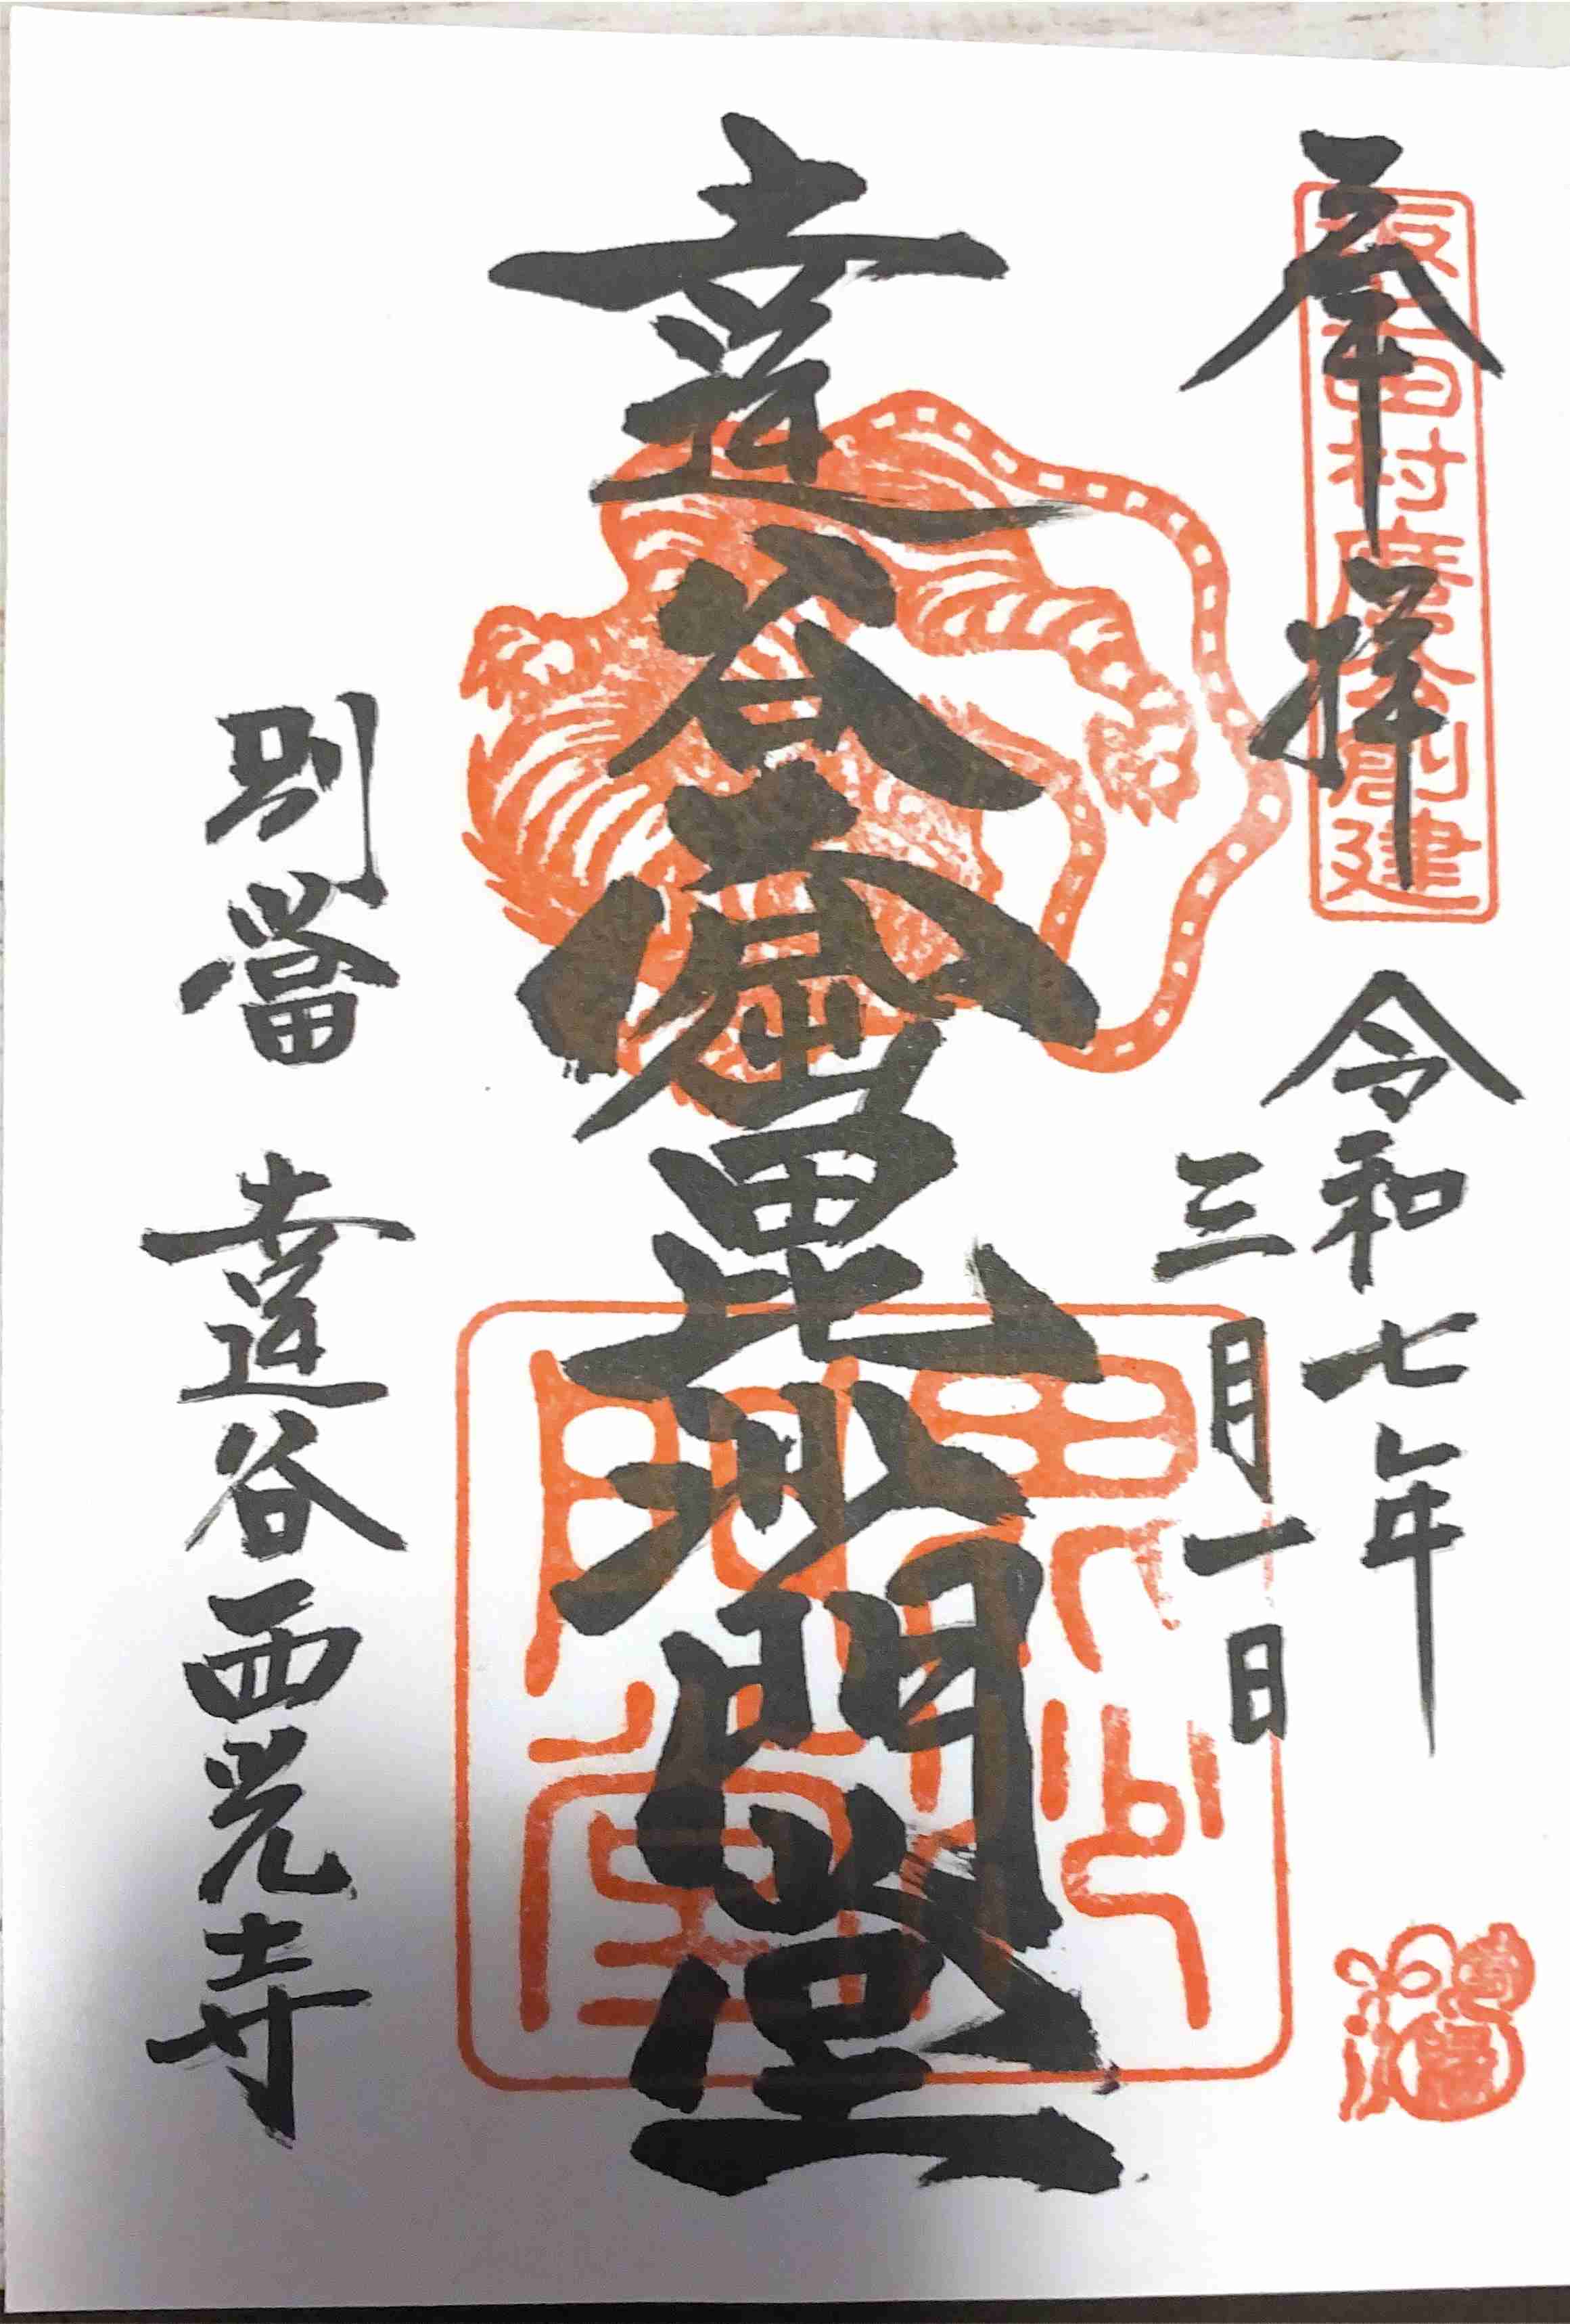 奉拝
坂上田村麿公創建
令和七年
三月一日
達谷窟毘沙門堂
毘沙門堂
別當 達谷西光寺